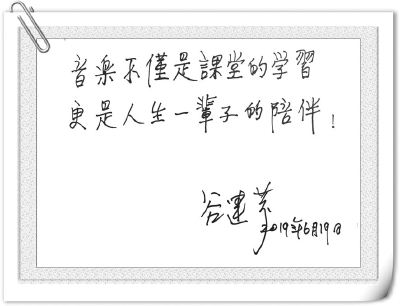 音楽不僅是課堂的学習
更是人生一輩子的陪伴！
谷建芬
2019年6月19日